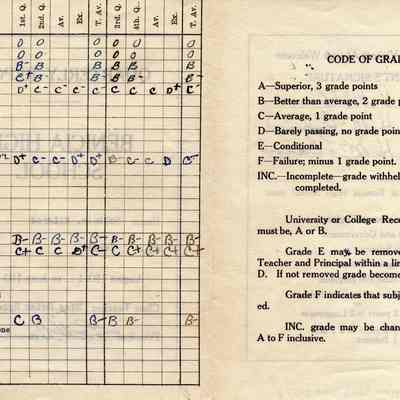 1st. Q. 2nd. Q. Av. Ex. T. Av. 3rd. Q. 4th. Q. Av. Ex. T. Av.
O O O O O O
O O O O O O
B- B B B B B
C+ B B B B-
D+ C- C- C- C- C C C D+ C-
D+ C- C- D D+ B C- C D C-
B- B- B- B- B- B- B- B- B- B-
C+ C C D+ C- C C+ C+ C+ C+
C B B- B- B- B-
CODE OF GRAD
A—Superior, 3 grade points
B—Better than average, 2 grade p
C—Average, 1 grade point
D—Barely passing, no grade poin
E—Conditional
F—Failure; minus 1 grade point.
INC.—Incomplete—grade withhel
completed.
University or College Reco
must be, A or B.
Grade E may be remove
Teacher and Principal within a lim
D. If not removed grade become
Grade F indicates that subj
ed.
INC. grade may be chan
A to F inclusive.